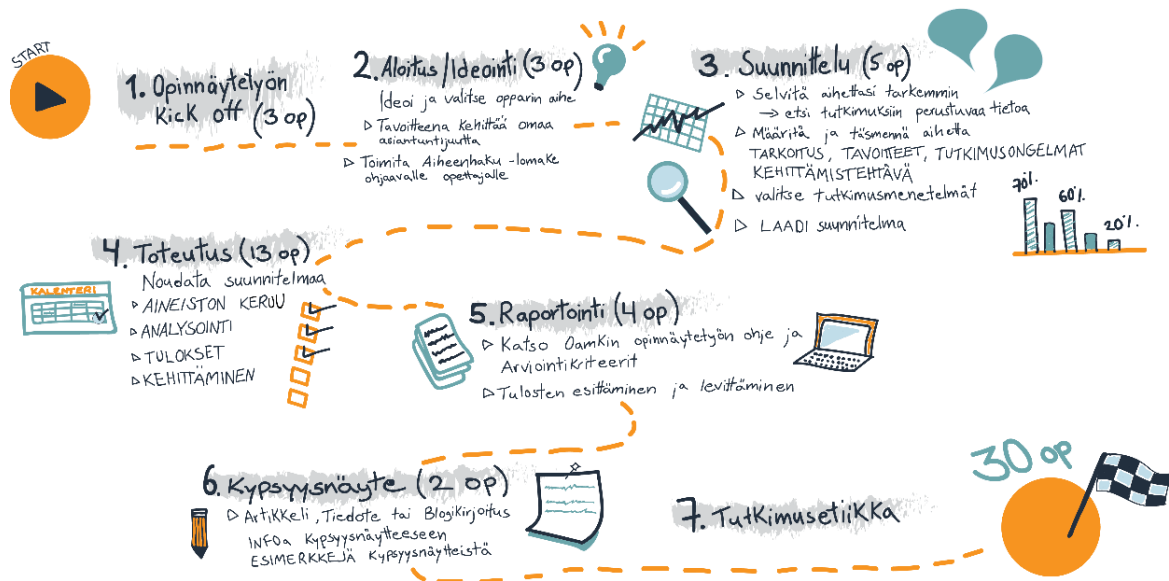 START
1. Opinnäytetyön
Kick off (3 op)
2. Aloitus/Ideointi (3 op)
Ideoi ja valitse opparin aihe
▷ Tavoitteena kehittää omaa
asiantuntijuutta
▷ Toimita Aiheenhaku -lomake
ohjaavalle opettajalle
3. Suunnittelu (5 op)
▷ Selvitä aihettasi tarkemmin
→ etsi tutkimuksiin perustuvaa tietoa
▷ Määritä ja täsmennä aihetta
TARKOITUS, TAVOITTEET, TUTKIMUSONGELMAT
KEHITTÄMISTEHTÄVÄ
▷ valitse tutkimusmenetelmät
▷ LAADI suunnitelma
70%.
60%.
20%.
4. Toteutus (13 op)
Noudata suunnitelmaa
▷ AINEISTON KERUU
▷ ANALYSOINTI
▷ TULOKSET
▷ KEHITTÄMINEN
KALENTERI
5. Raportointi (4 op)
▷ Katso Oamkin opinnäytetyön ohje ja
Arviointikriteerit
▷ Tulosten esittäminen ja levittäminen
6. Kypsyysnäyte (2 op)
▷ Artikkeli, Tiedote tai Blogikirjoitus
INFOa Kypsyysnäytteeseen
ESIMERKKEJÄ Kypsyysnäytteistä
7. Tutkimusetiikka
30 op